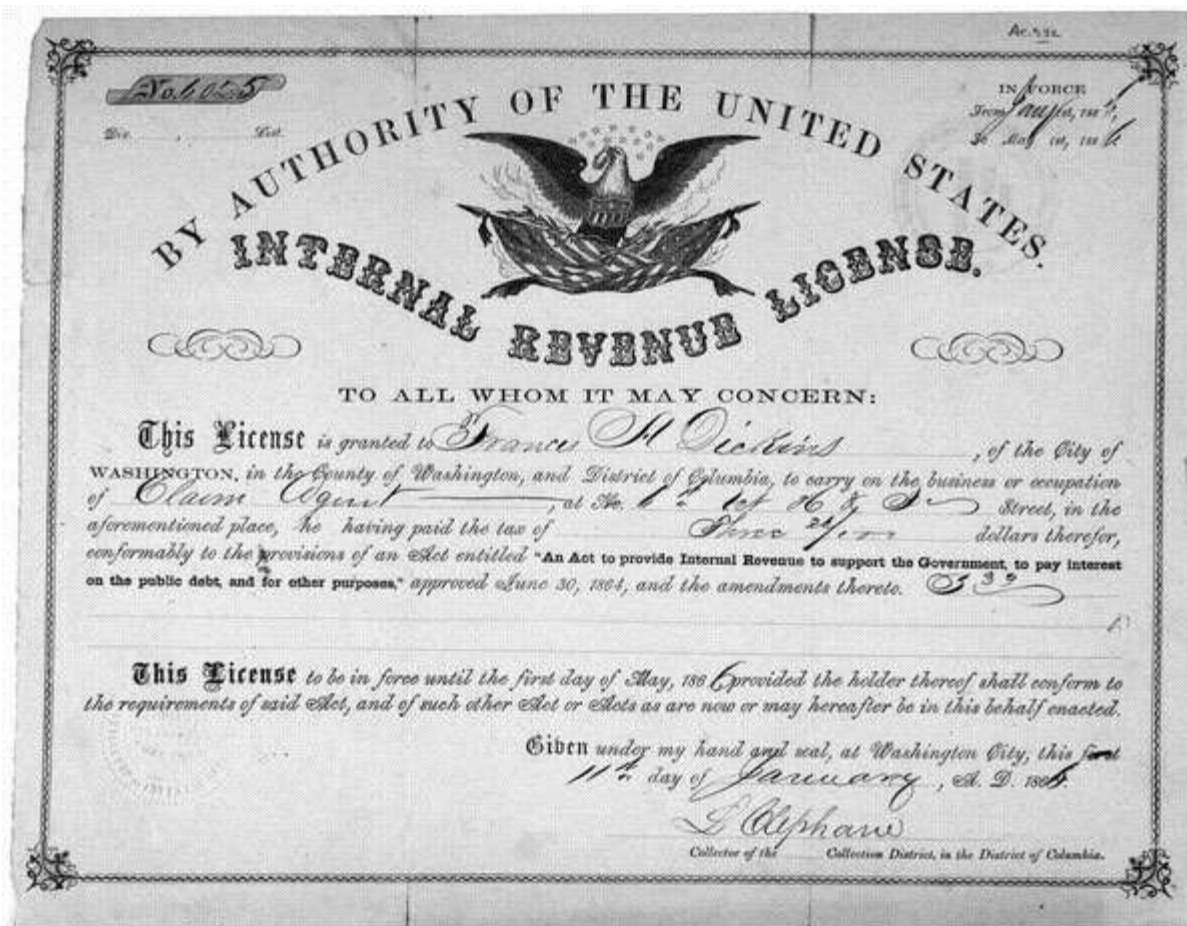 No. 6055
Div. , Dist.
IN FORCE
From Jany 1st, 186
To May 1st, 1866
BY AUTHORITY OF THE UNITED STATES.
INTERNAL REVENUE LICENSE.
TO ALL WHOM IT MAY CONCERN:
This License is granted to Frances H Dickins , of the City of
WASHINGTON, in the County of Washington, and District of Columbia, to carry on the business or occupation
of Claim Agent , at No. Street, in the
aforementioned place, he having paid the tax of Three dollars therefor,
conformably to the provisions of an Act entitled "An Act to provide Internal Revenue to support the Government, to pay interest
on the public debt, and for other purposes," approved June 30, 1864, and the amendments thereto.
This License to be in force until the first day of May, 1866 provided the holder thereof shall conform to
the requirements of said Act, and of such other Act or Acts as are now or may hereafter be in this behalf enacted.
Given under my hand and seal, at Washington City, this first
11th day of January , A. D. 1866.
L Clephane
Collector of the Collection District, in the District of Columbia.